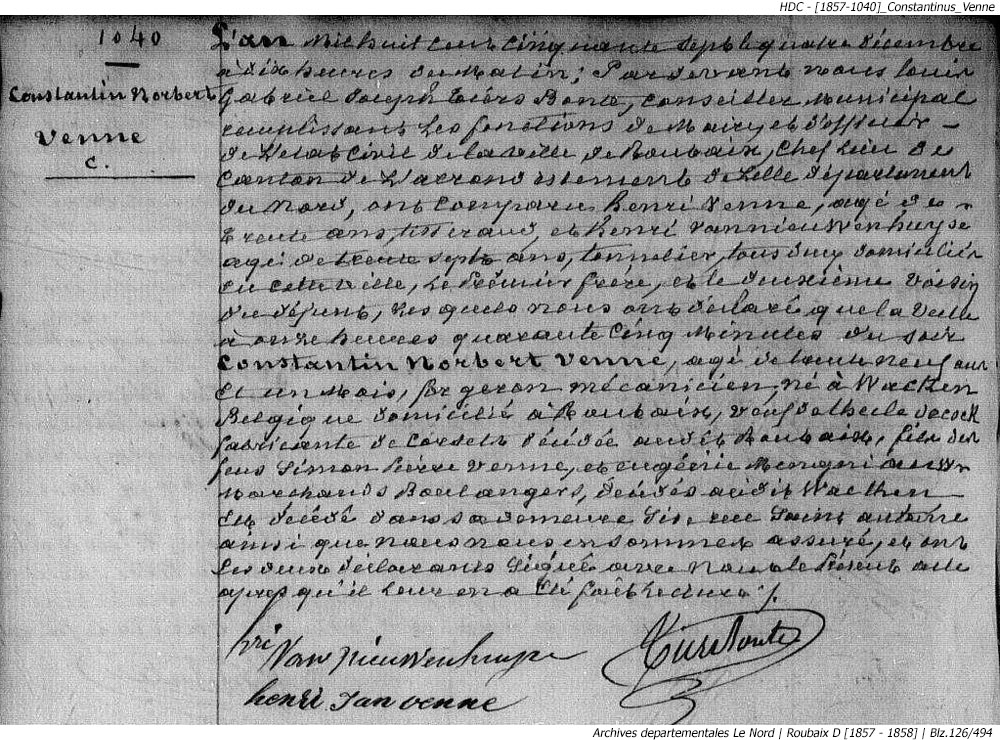 HDC - [1857-1040]_Constantinus_Venne
1040
Constantin Norbert
Venne
C.
L'an Mil huit Cent Cinquante Sept le quatre décembre
à dix heures du Matin; Pardevant nous Louis
Gabriel Joseph Tiers Bonte, Conseiller Municipal
remplissant les fonctions de Maire et d'officier
de L'état Civil de la ville de Roubaix, Chef Lieu de
Canton de L'arrondissement de Lille département
du Nord, ont Comparu henri Venne, agé de
trente ans, tisserand, et henri Vannieuwenhuyse
agé de trente sept ans, tonnelier, tous deux domiciliés
en cette ville, Le Premier frère, et le deuxième Voisin
du défunt, Lesquels nous ont déclaré que la Veille
à onze heures quarante Cinq Minutes du soir
Constantin Norbert Venne, agé de trente neuf ans
et un Mois, forgeron mécanicien, né à Wacken
Belgique domicilié à Roubaix, Veuf de decock
fabricante de Corsets décédée audit Roubaix, fils des
feus Simon Pierre Venne, et eugénie
Marchands Boulangers, décédés audit Wacken
Est décédé dans sa demeure Sise rue Saint antoine
ainsi que nous nous en sommes assuré, et ont
Les deux déclarants Signé avec Nous le Présent acte
après qu'il leur en a été fait Lecture ./.
hri Van Nieuwenhuyse
henri Jan venne
Archives departementales Le Nord | Roubaix D [1857 - 1858] | Blz.126/494